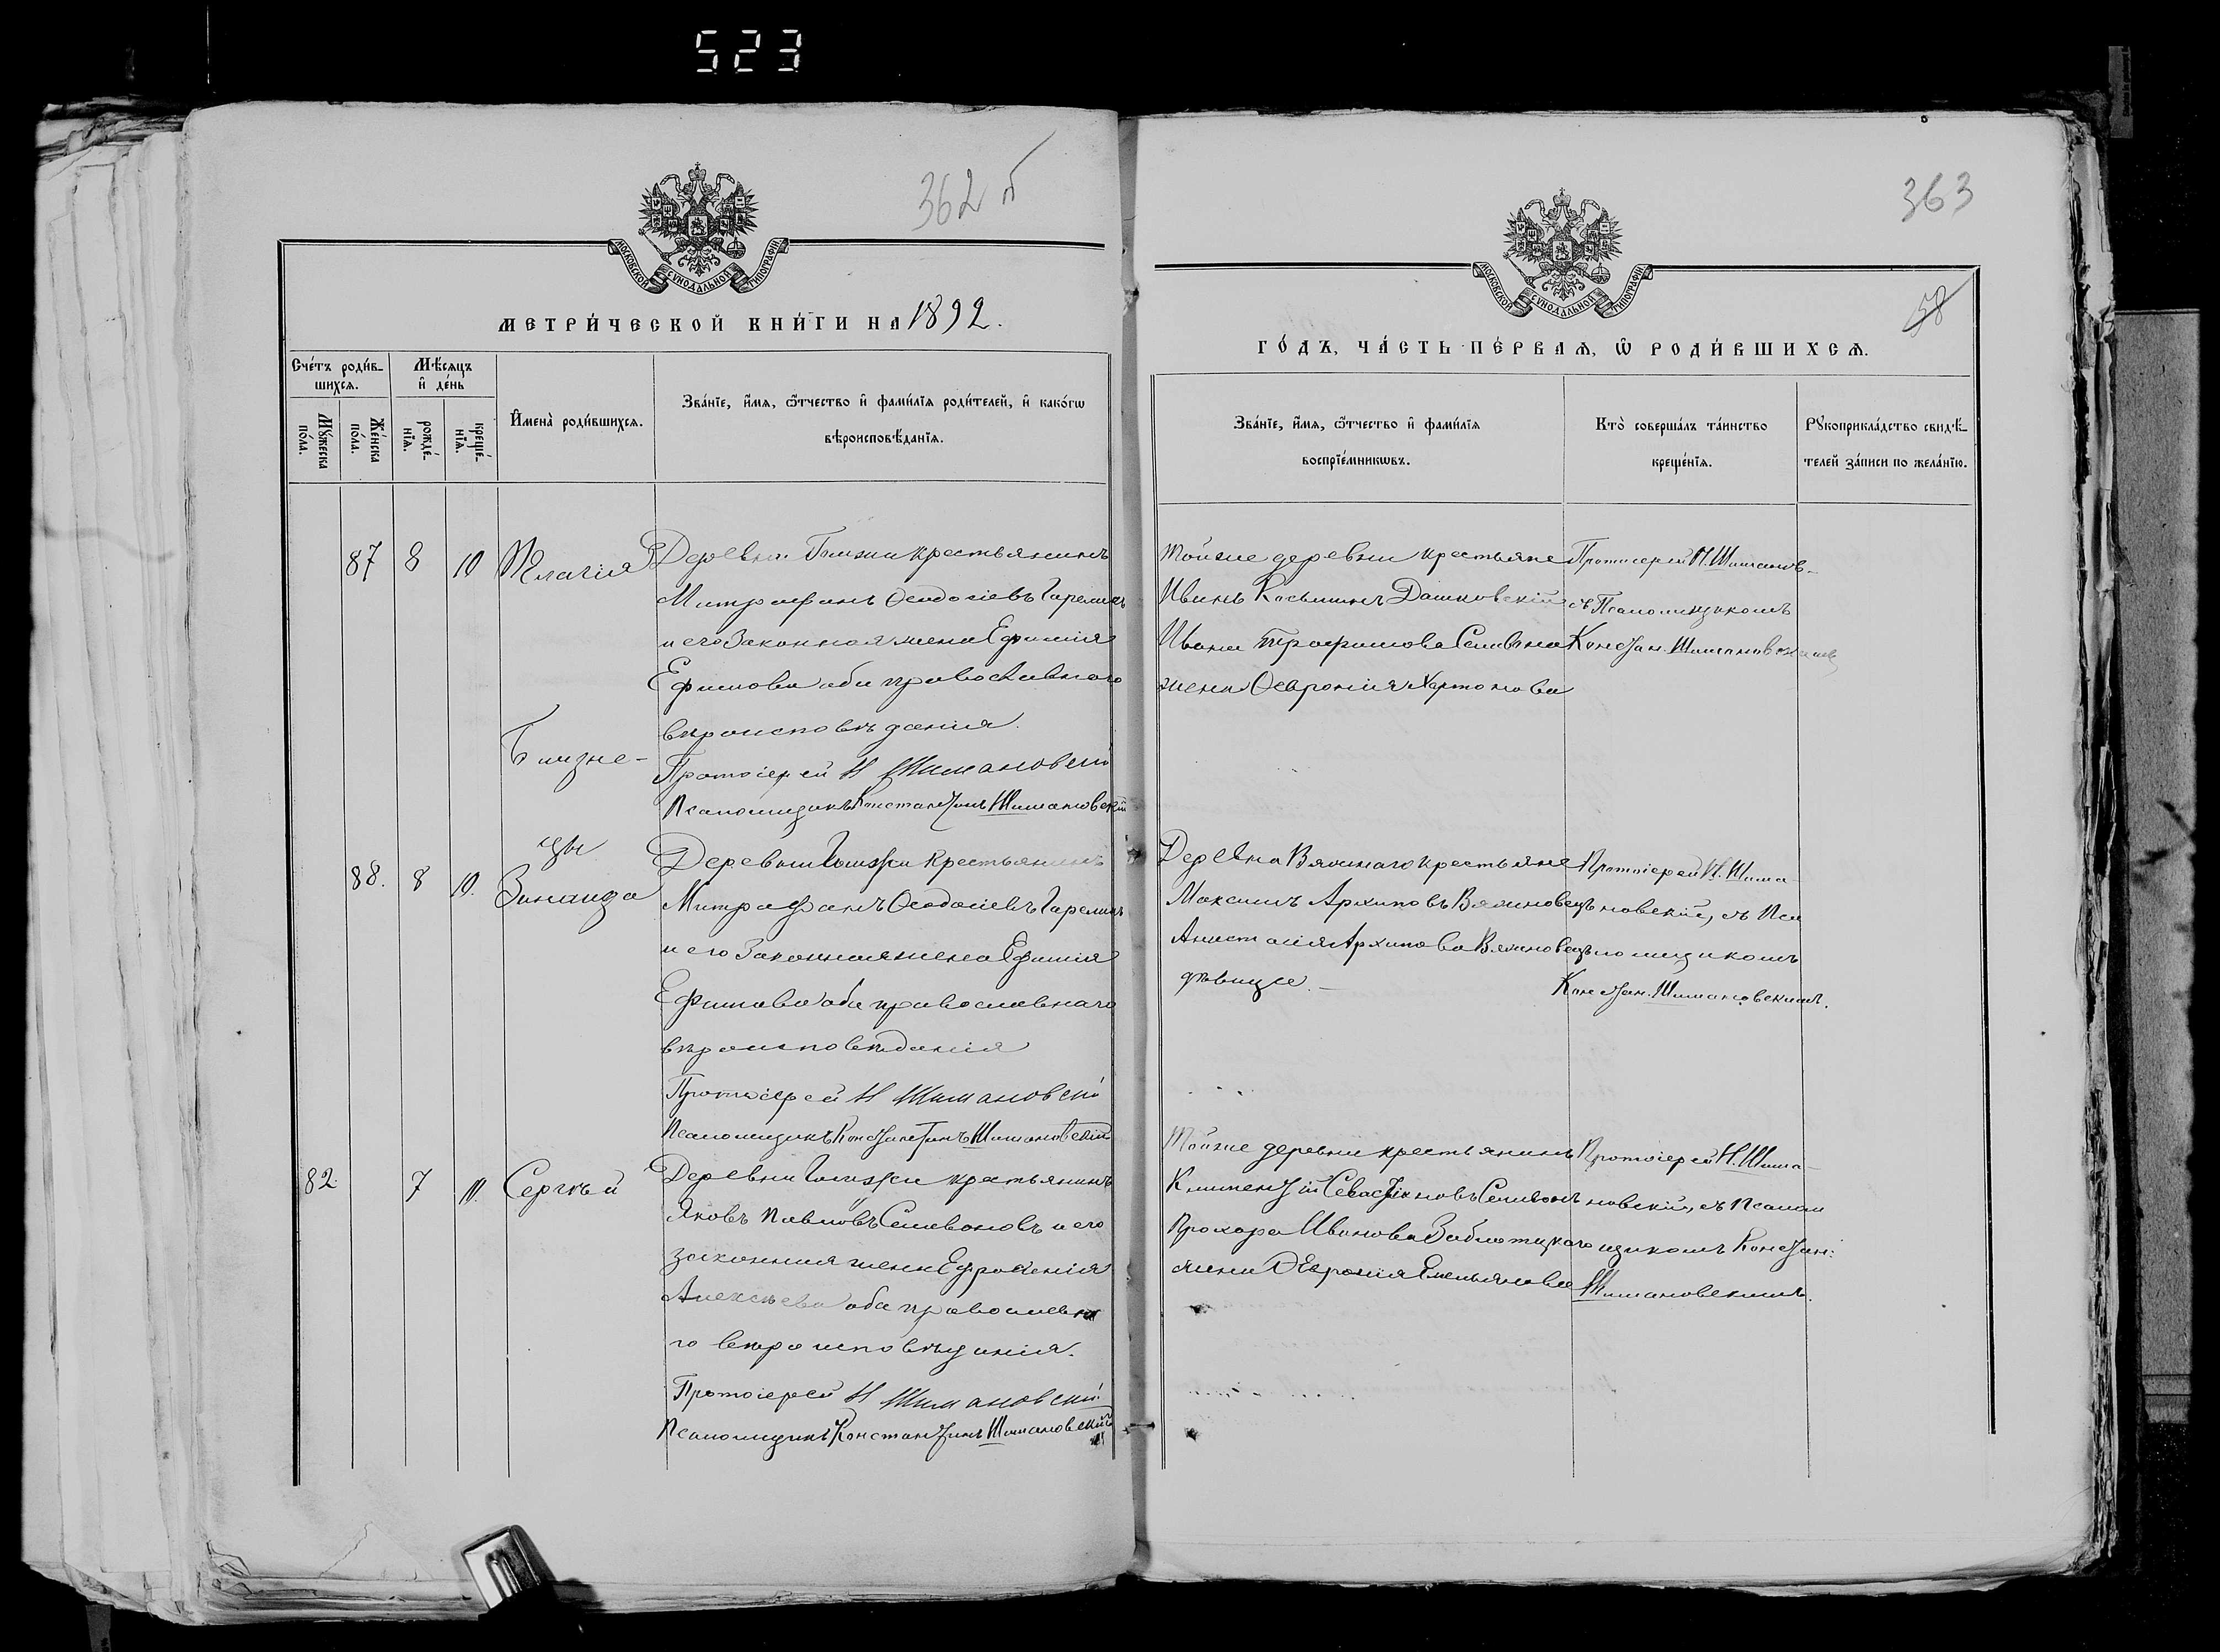 523
362 б
МОСКОВСКОЙ СУНОДАЛЬНОЙ ТИПОГРАФІИ
МЕТРИ́ЧЕСКОЙ КНИ́ГИ НА 1892.
Сче́тъ роди́в-
шихсѧ.
Мѣ́сяцъ
и҆ де́нь
Мꙋ́жеска
по́ла.
Же́нска
по́ла.
рожде́-
нїѧ.
креще́-
нїѧ.
И҆мена̀ роди́вшихсѧ.
Зва́нїе, и҆́мѧ, ѻ҆́тчество и҆ фами́лїѧ роди́телей, и҆ како́гѡ
вѣроисповѣ́данїѧ.
87 8 10 Пелагія
Деревни крестьянинъ
Митрофанъ Ѳеодосіевъ
и его законная жена Ефимія
Ефимова оба православнаго
вѣроисповѣданія.
Близне-
Протоіерей Н Шимановскій
Псаломщикъ Константинъ Шимановскій
цы
88. 8 10. Зинаида
Деревни крестьянинъ
Митрофанъ Ѳеодосіевъ
и его законная жена Ефимія
Ефимова оба православнаго
вѣроисповѣданія
Протоіерей Н Шимановскій
Псаломщикъ Константинъ Шимановскій
82. 7 11. Сергѣй
Деревни крестьянинъ
Яковъ Павловъ Селивоновъ и его
законная жена Ефросинія
Алексѣева оба православна
го вѣроисповѣданія.
Протоіерей Н Шимановскій
Псаломщикъ Константинъ Шимановскій
363
58
МОСКОВСКОЙ СУНОДАЛЬНОЙ ТИПОГРАФІИ
ГО́ДЪ, ЧА́СТЬ ПЕ́РВАѦ, Ѡ҆ РОДИ́ВШИХСѦ.
Зва́нїе, и҆́мѧ, ѻ҆́тчество и҆ фами́лїѧ
воспрїе́мникѡвъ.
Кто̀ соверша́лъ та́инство
креще́нїѧ.
Рꙋкоприкла́дство свидѣ́-
телей за́писи по жела́нїю.
Тойже деревни крестьяне
Иванъ Косьминъ Дашковскій
Ивана Трофимова Селивона
жена Ѳеvронія Харитонова
Протоіерей Н. Шиманов-
съ Псаломщикомъ
Констан. Шимановскимъ
Деревни крестьяне
Максимъ Архиповъ
Анастасія Архипова
дѣвица.
Протоіерей Н. Шима-
новскій, съ Пса
ломщикомъ
Констан. Шимановскимъ.
Тойже деревни крестьянинъ
Климентій Севастіановъ Селивонъ
Прохора Иванова Заблотцкаго
жена Ѳеvронія Емельянова
Протоіерей Н. Шима-
новскій, съ Псалом
щикомъ Констан:
Шимановскимъ.